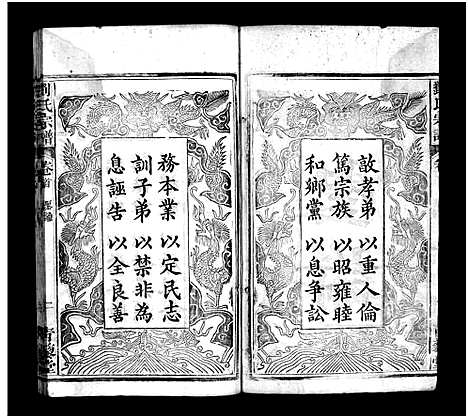 敦孝弟 以重人倫
篤宗族 以昭雍睦
和鄉黨 以息爭訟
務本業 以定民志
訓子弟 以禁非為
息誣告 以全良善
氏宗譜 卷首